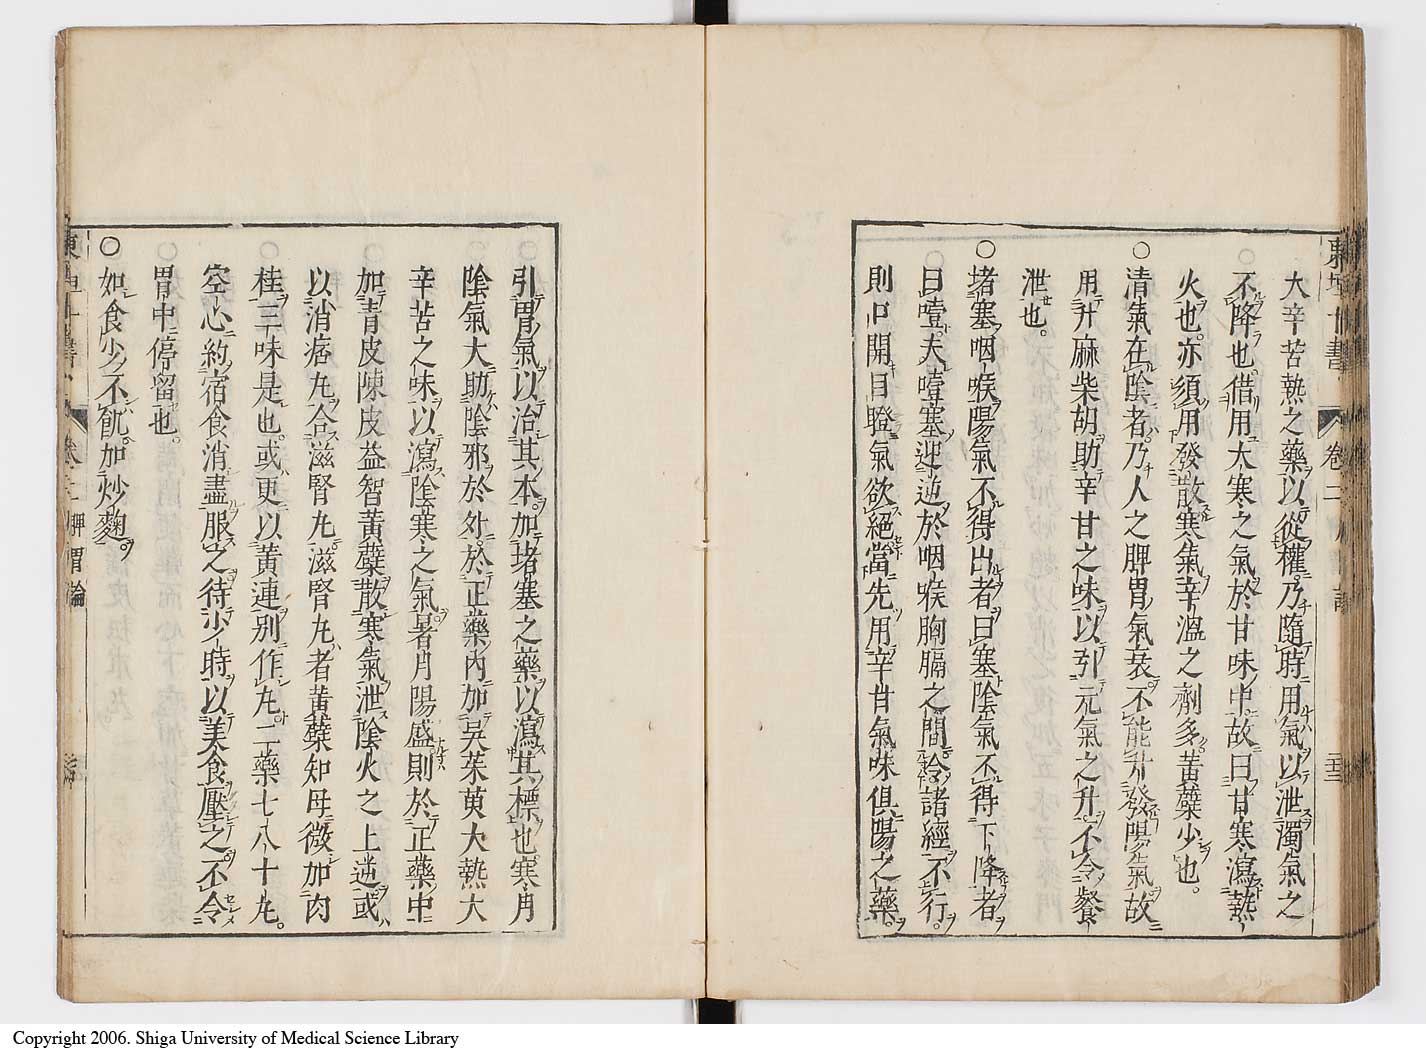 大辛苦熱之藥以從權乃隨時用氣以泄濁氣之
不降也借用大寒之氣於甘味中故曰甘寒瀉熱
火也亦須用發散寒氣辛溫之劑多黃蘗少也
○淸氣在陰者乃人之脾胃氣衰不能升發陽氣故
用升麻柴胡助辛甘之味以引元氣之升不令飱
泄也
○堵塞咽喉陽氣不得出者曰塞陰氣不得下降者
曰噎夫噎塞迎逆於咽喉胸膈之間令諸經不行
則口開目瞪氣欲絕當先用辛甘氣味俱陽之藥
引胃氣以治其本加堵塞之藥以瀉其標也寒月
陰氣大助陰邪於外於正藥內加吳茱萸大熱大
辛苦之味以瀉陰寒之氣暑月陽盛則於正藥中
加青皮陳皮益智黃蘗散寒氣泄陰火之上逆或
以消痞丸合滋腎丸滋腎丸者黃蘗知母微加肉
桂三味是也或更以黃連別作丸二藥七八十丸
空心約宿食消盡服之待少時以美食壓之不令
胃中停留也
○如食少不飢加炒麴
卷二 脾胃論
Copyright 2006. Shiga University of Medical Science Library